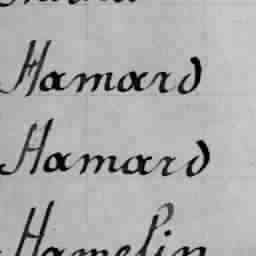 Hamard
Hamard
Hamelin